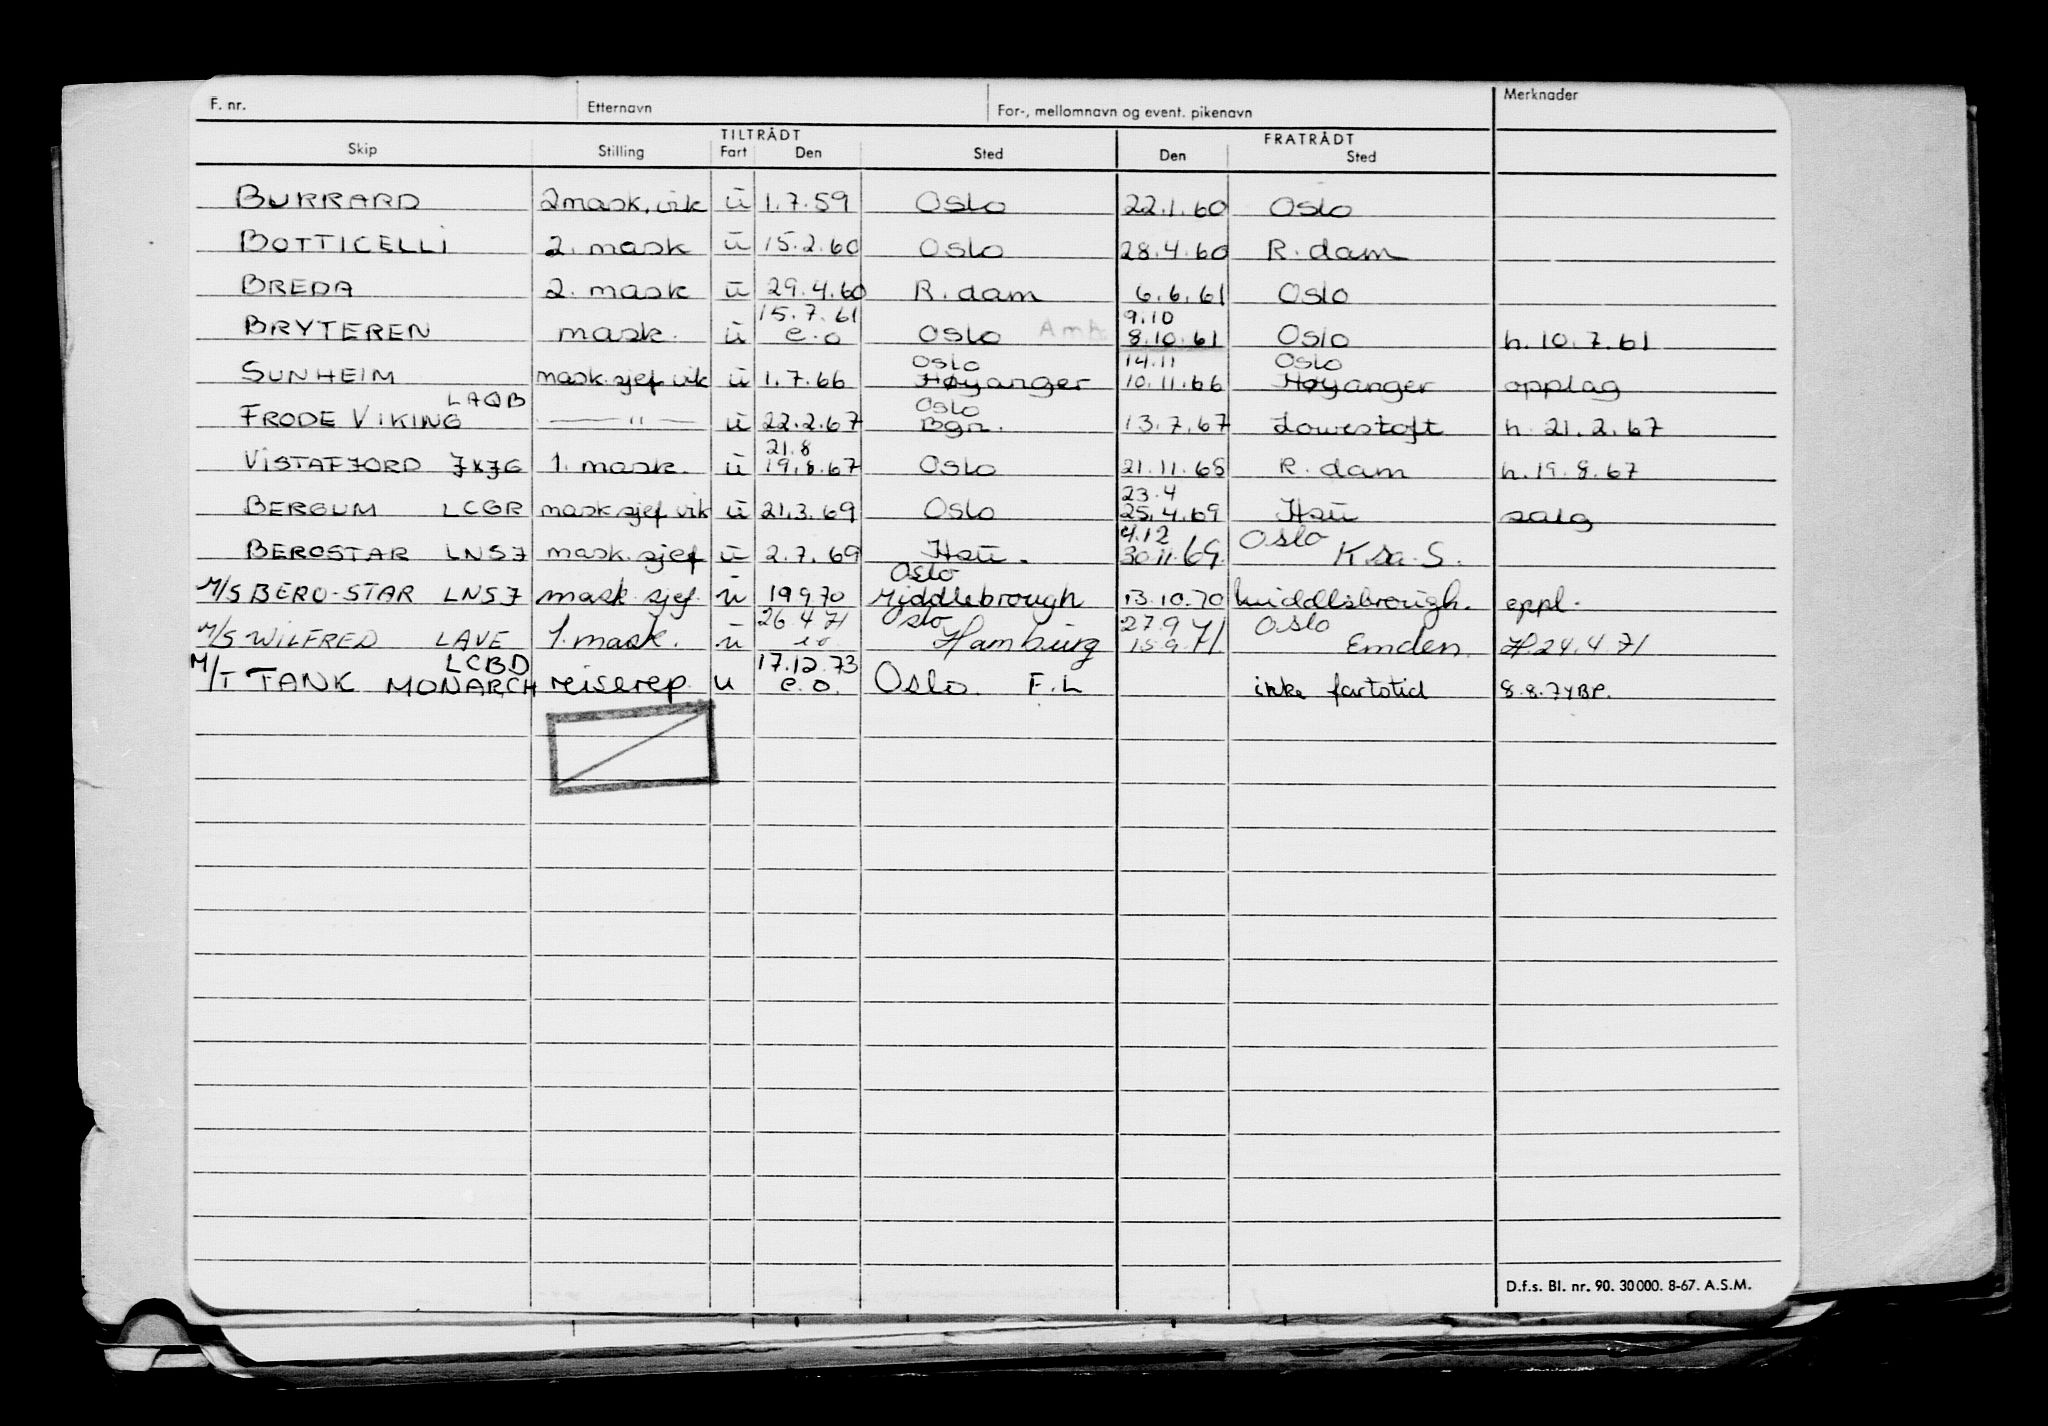 F. nr. Etternavn For-, mellomnavn og event. pikenavn Merknader
TILTRÅDT FRATRÅDT
Skip Stilling Fart Den Sted Den Sted
BURRARD 2 mask. vik ū 1.7.59 Oslo 22.1.60 Oslo
BOTTICELLI 2. mask ū 15.2.60 Oslo 28.4.60 R.dam
BREDA 2. mask ū 29.4.60 R.dam 6.6.61 Oslo
15.7.61 9.10
BRYTEREN mask. ū e.o Oslo 8.10.61 Oslo h. 10.7.61
Oslo 14.11 Oslo
SUNHEIM mask.sjef vik ū 1.7.66 Høyanger 10.11.66 Høyanger opplag
LAQB Oslo
FRODE VIKING — " — ū 22.2.67 Bgn. 13.7.67 Lowestoft h. 21.2.67
21.8
VISTAFJORD JXJG 1. mask. ū 19.8.67 Oslo 21.11.68 R.dam h. 19.8.67
23.4
BERGUM LCGR mask.sjef vik ū 21.3.69 Oslo 25.4.69 Hsū salg
4.12 Oslo
BEROSTAR LNSJ mask.sjef ū 2.7.69 Hsū. 30.11.69 Kra.S.
Oslo
M/S BERO-STAR LNSJ mask sjef ū 19 9 70 Middlebrough 13.10.70 Middlsbrough. oppl.
26 4 71 Oslo 27.9 71 Oslo
M/S WILFRED LAVE 1. mask. ū eo Hamburg 15.9.71 Emden H.24.4.71
LCBD 17.12.73
M/T TANK MONARCH reiserep. u e.o. Oslo. F.L ikke fartstid 8.8.74 BP.
D.f.s. Bl. nr. 90. 30 000. 8-67. A.S.M.